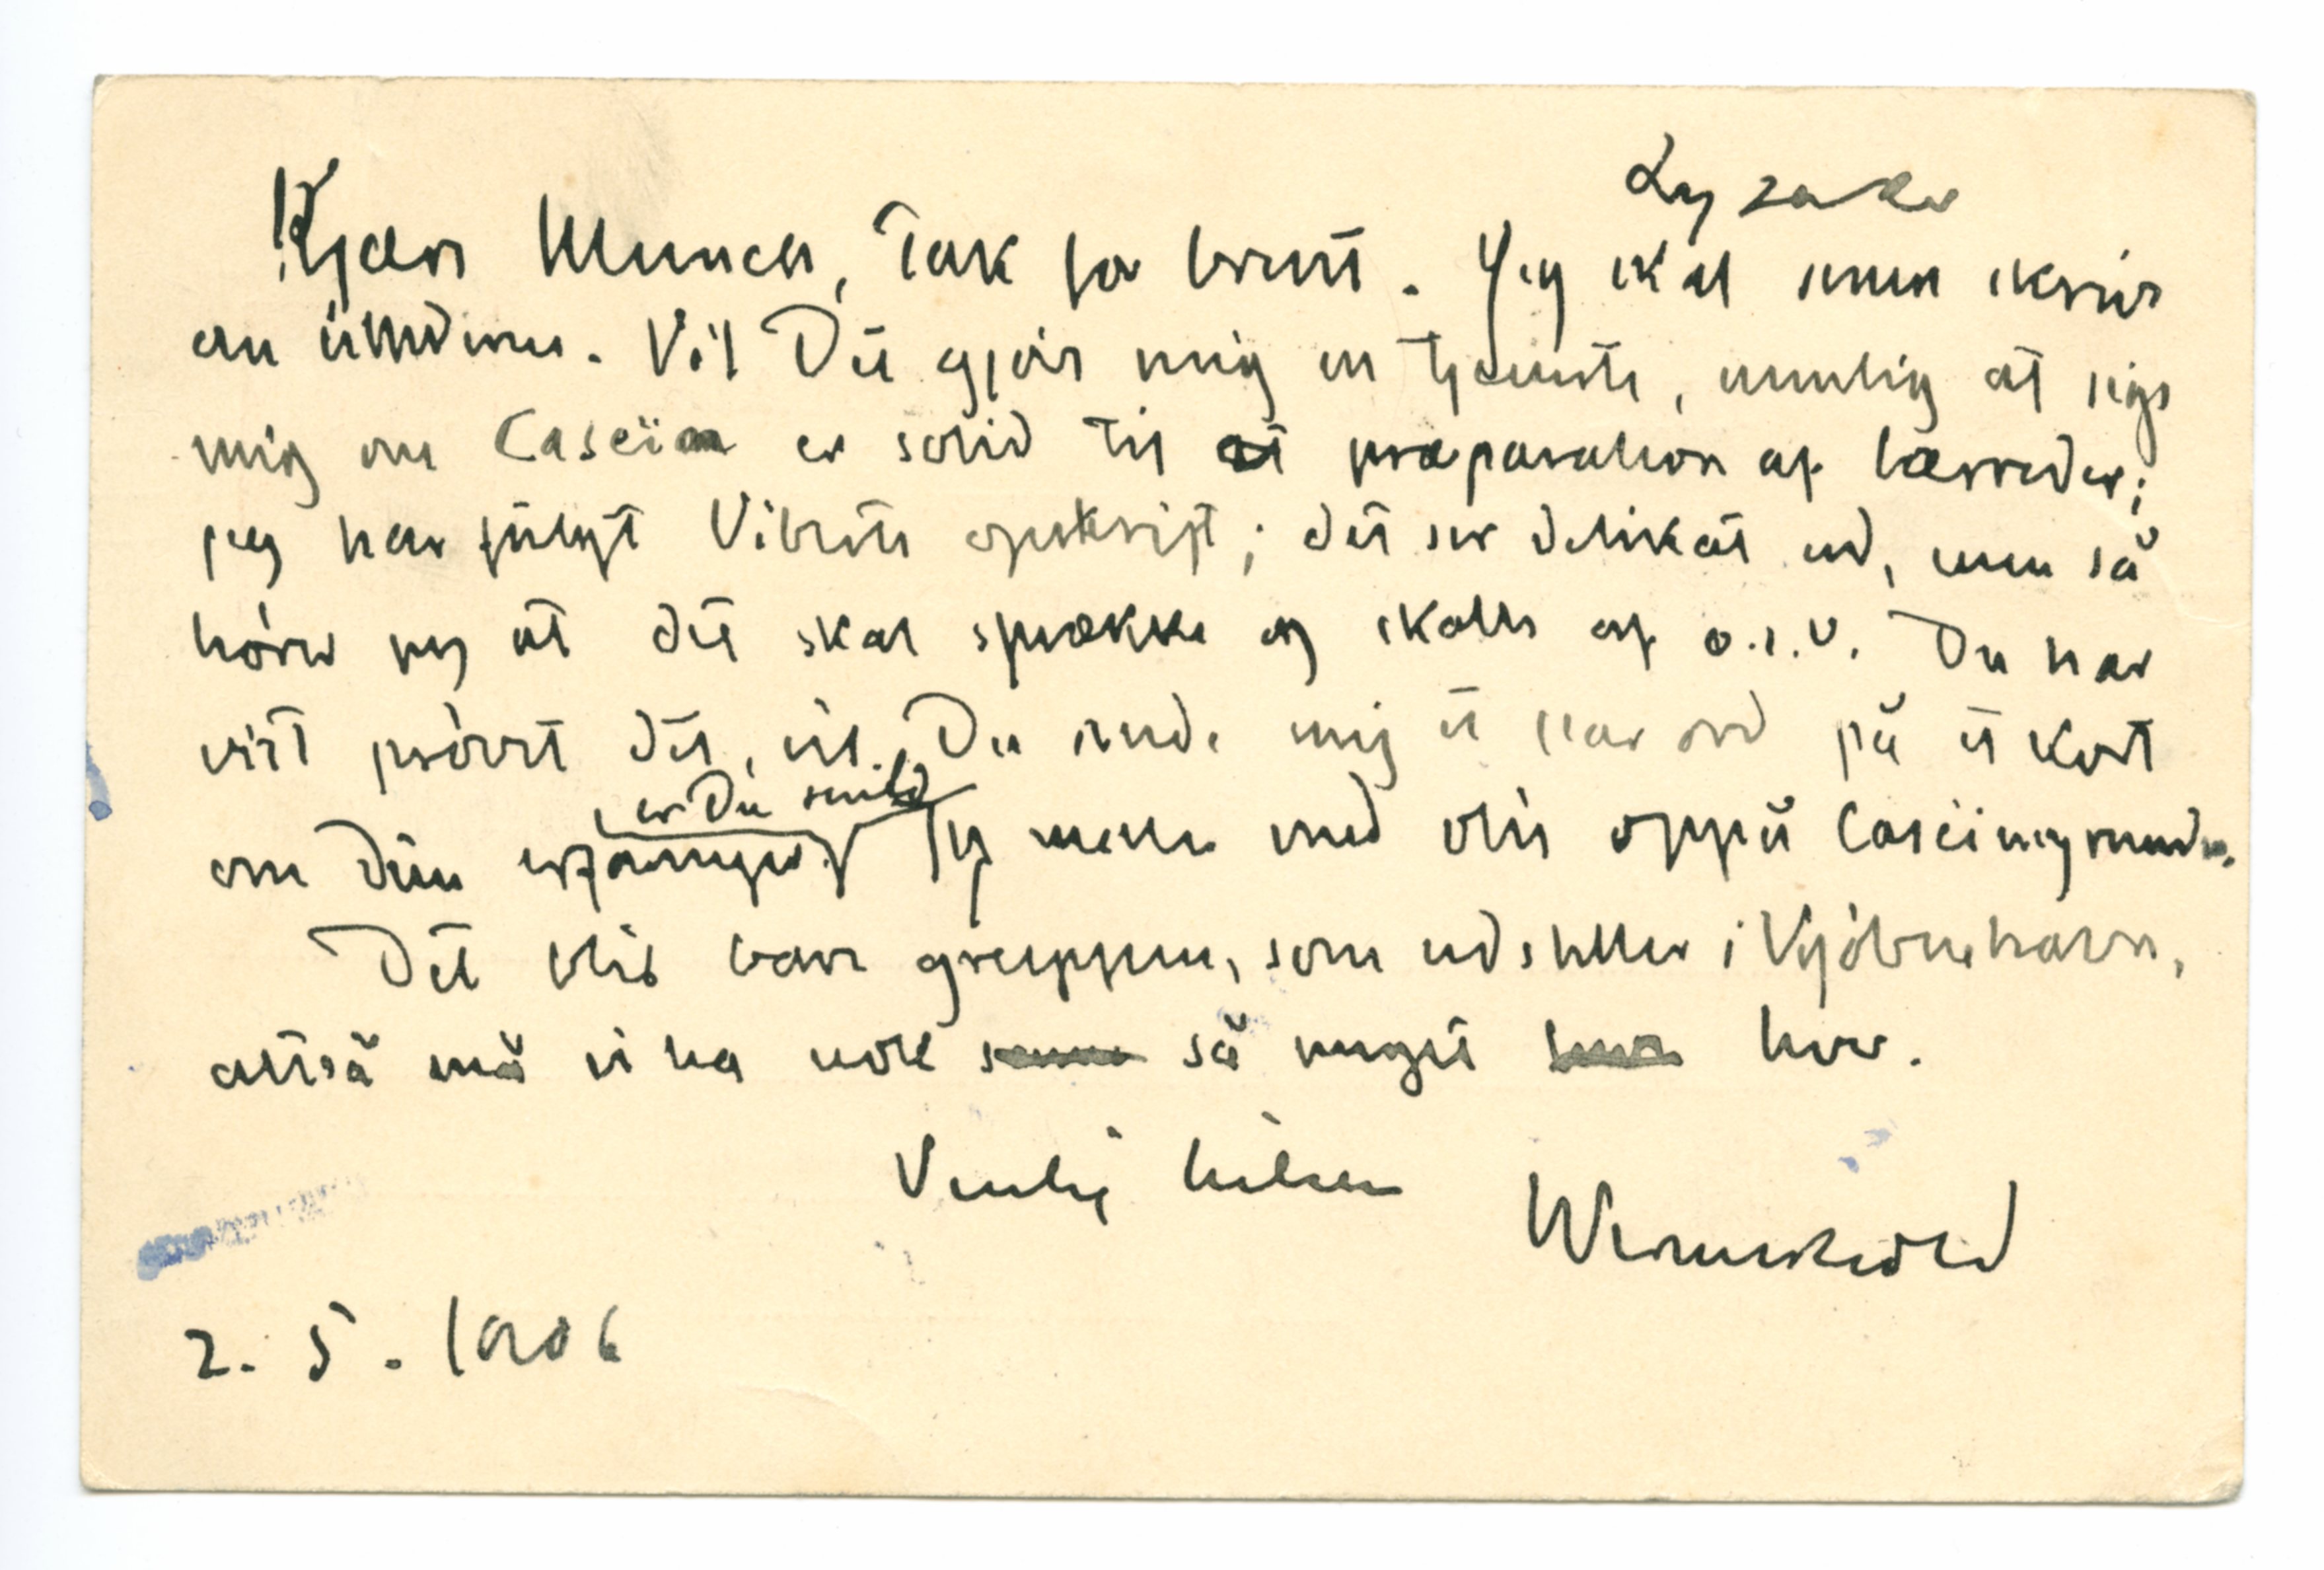 Lysaker
Kjære Munch, Tak for brevet. Jeg skal snart skrive
om Du gjøre mig en tjeneste, nemlig at sige
mig om Caseïn er solid til præparation af lærreder;
jeg har fulgt Viberts opskrift; det ser delikat ud, men så
hører jeg at det skal sprække og skalle af o.s.v. Du har
vist prøvet det, vil Du sende mig et par ord på et kort
om dine erfaringer, er Du snild
Jeg maler med olie oppå Caseingrunden.
Det blir bare gruppen, som udstiller i Kjöbenhavn,
altså må vi ha nok så meget hver.
Venlig hilsen
Werenskiold
2. 5. 1906